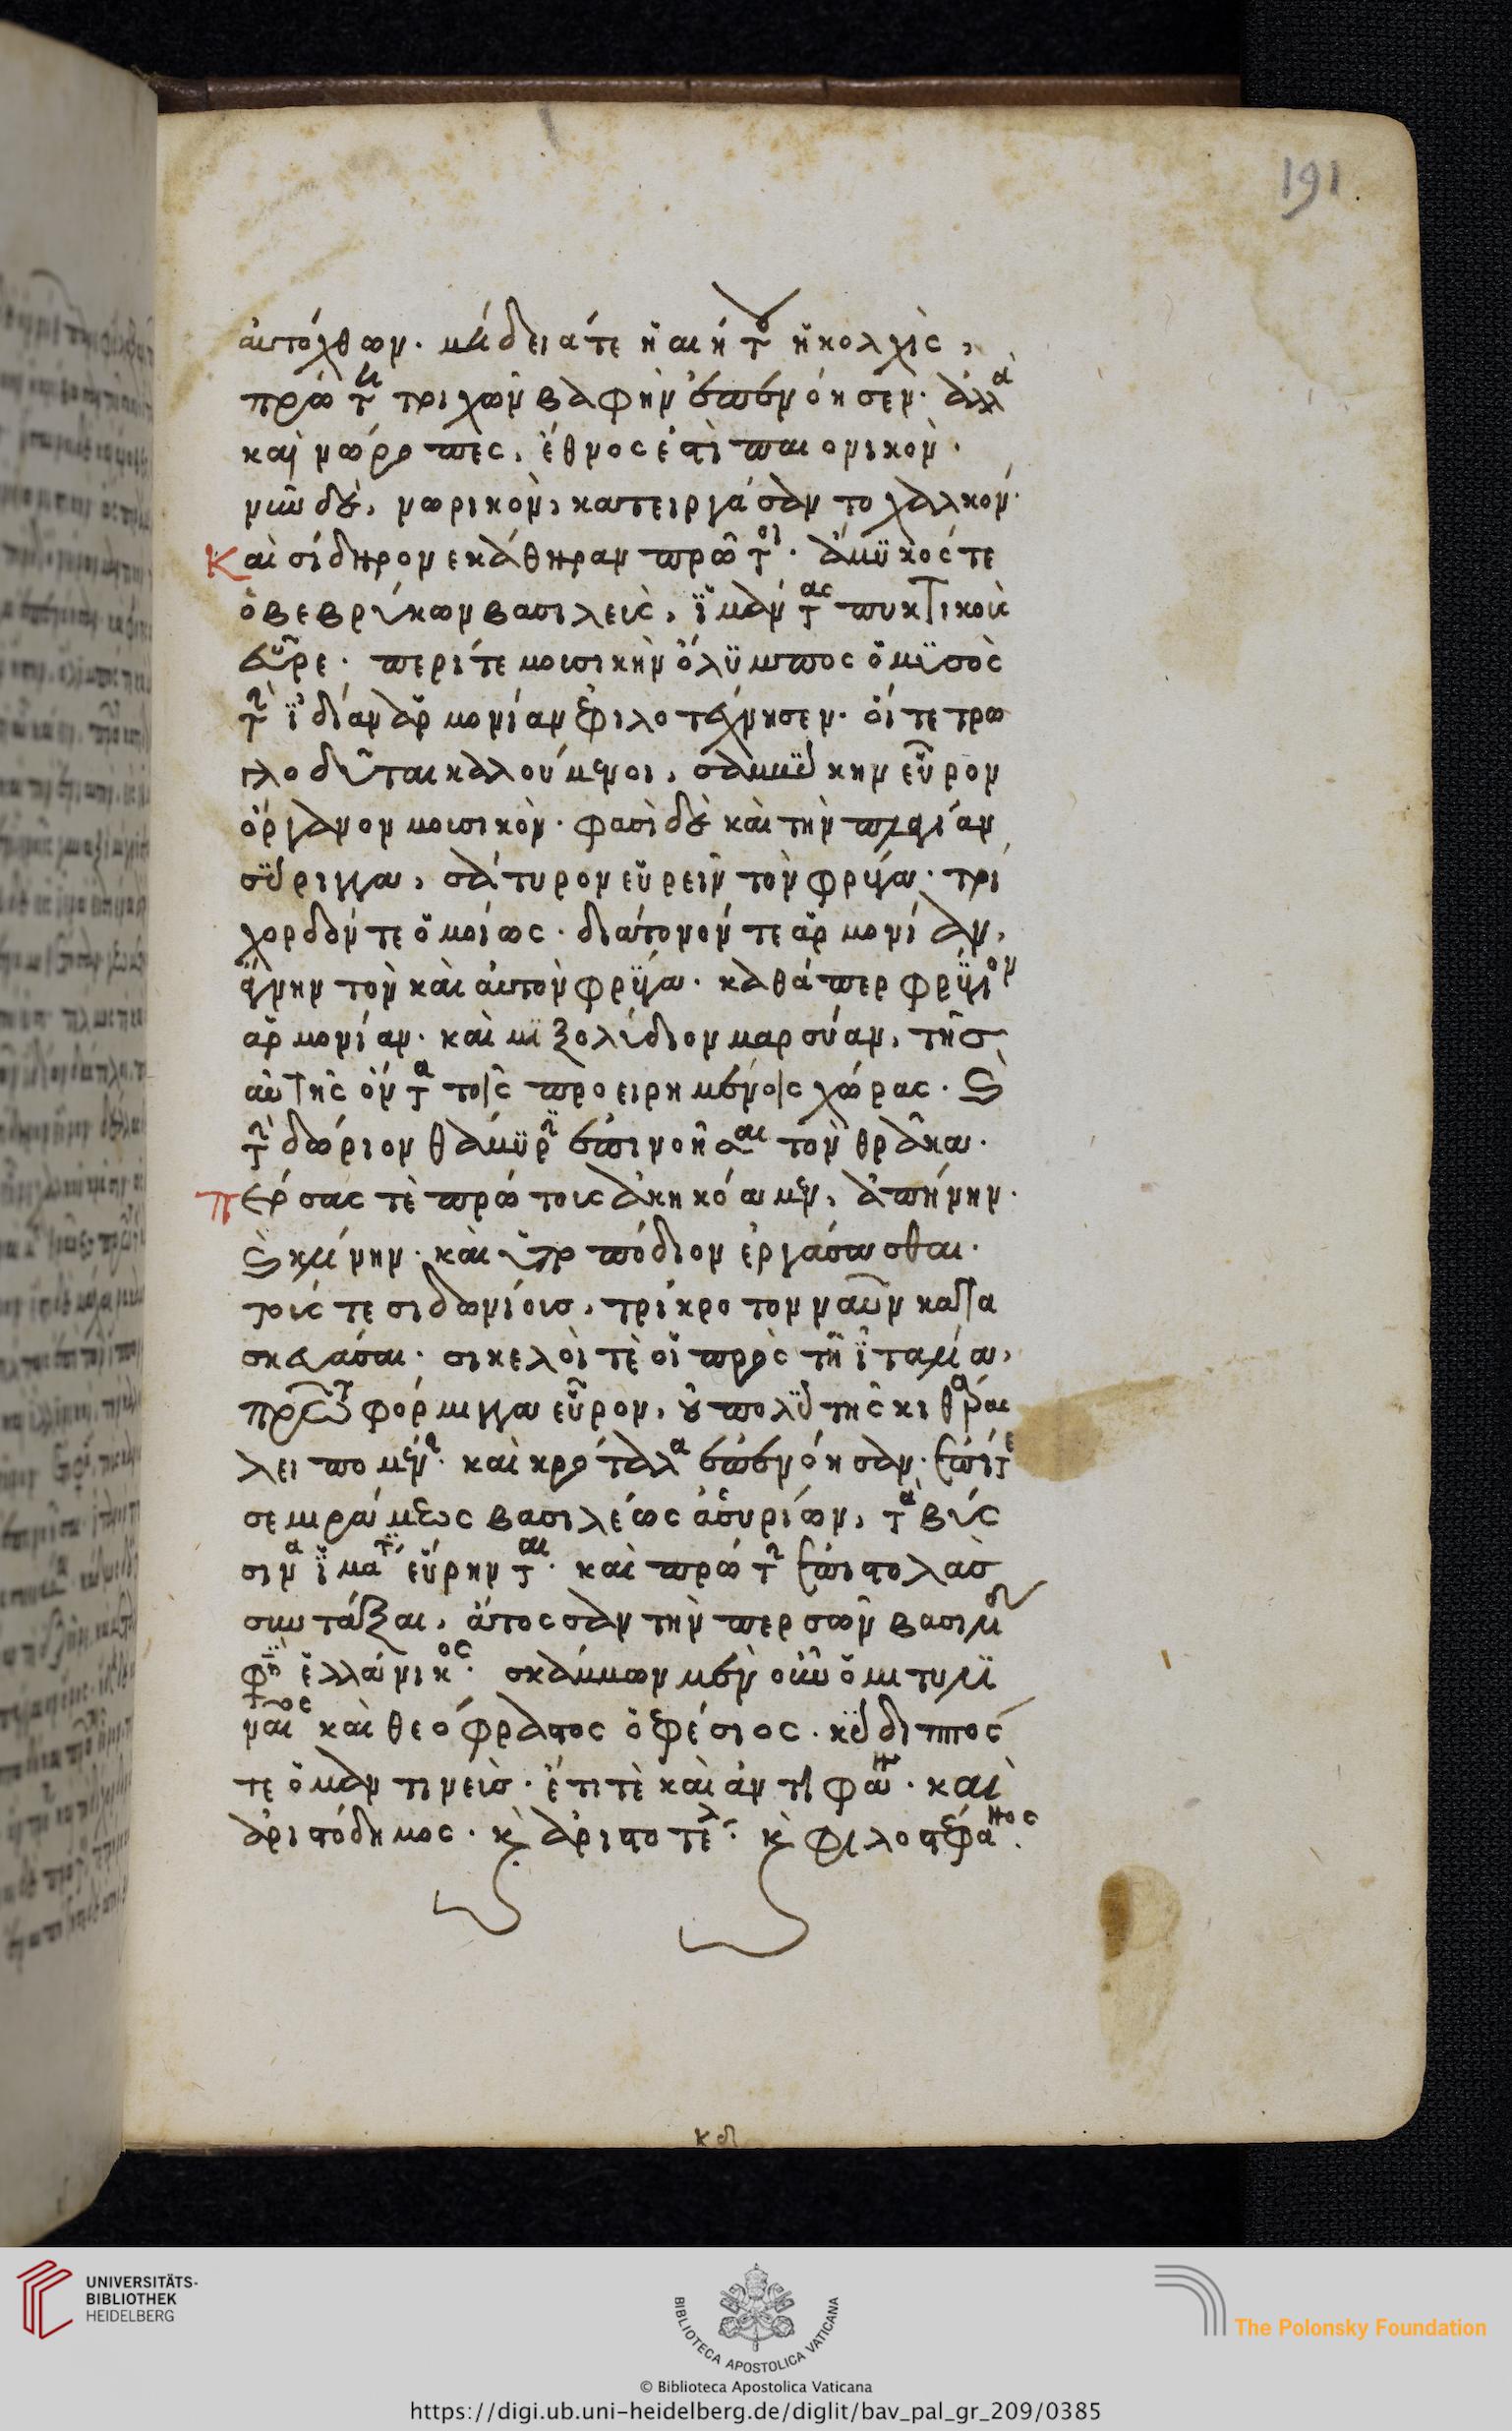 191
αὐτόχθων. μήδειά τε ἡ αιήτου ἡ κολχὶς,
πρώτη τριχῶν βαφὴν ἐπενόησεν. ἀλλὰ
καὶ νώροπες, ἔθνος ἐστὶ παιονικὸν.
νῦν δὲ, νωρικὸν, κατειργάσαντο χαλκόν.
Και σίδηρον εκάθηραν πρῶτοι. ἄμϋκός τε
ὁ βεβρύκων βασιλεὺς, ἱμάντας πυκτικοὺς
εὗρε. περί τε μουσικὴν ὄλϋμπος ὁ μϋσὸς
τὴν ϊδίαν ἁρμονίαν ἐφιλοτέχνησεν. οἵ τε τρω
γλοδῦται καλούμενοι, σαμβύκην εὗρον
ὄργανον μουσικὸν. φασὶ δὲ καὶ τὴν πλαγίαν
σύριγγα, σάτυρον εὑρεῖν τὸν φρύγα. τρί
χορδόν τε ὁμοίως. διάτονόν τε ἁρμονίαν,
ἄγνην τὸν καὶ αὐτὸν φρύγα. καθάπερ φρύγιον
ἁρμονίαν. καὶ μιξολύδιον μαρσύαν, τῆς
αὐτῆς ὄντα τοῖς προειρημένοις χώρας. καὶ
τὴν δώριον θάμυριν ἐπινοῆσαι τὸν θρᾶκα.
Πέρσας τὲ πρώτους ἀκηκόαμεν, ἀπήνην.
καὶ κλίνην. καὶ ὑποπόδιον ἐργάσασθαι.
τούς τε σιδωνίους, τρίκροτον ναῦν κατα
σκευάσαι. σικελοὶ τὲ οἱ πρὸς τῆ ϊταλία,
πρῶτοι φόρμιγγα εὗρον, οὐ πολϋ τῆς κιθάρας
λειπομένην. καὶ κρόταλα ἐπενόησαν. ἐπί τε
σεμιράμεως βασιλέως ἀσυρίων, τὰ βύσ
σινα ϊμάτια εὕρηνται. καὶ πρώτην ἐπιστολὰς
συντάξαι, ἄτοσσαν τὴν περσῶν βασιλεύ
φησὶν ἑλλάνικος. σκάμμων μὲν οὖν ὁ μιτυλη
ναῖος καὶ θεόφραστος ὁ ἐφέσιος. κύδιππός
τε ὁ μαντινεὺς. ἔτι τὲ καὶ ἀντιφῶν. καὶ
ἀριστόδημος. καὶ ἀριστοτέλης. καὶ φιλοστέφανος.
κδ
UNIVERSITÄTS-
BIBLIOTHEK
HEIDELBERG
BIBLIOTECA APOSTOLICA VATICANA
The Polonsky Foundation
© Biblioteca Apostolica Vaticana
https://digi.ub.uni-heidelberg.de/diglit/bav_pal_gr_209/0385